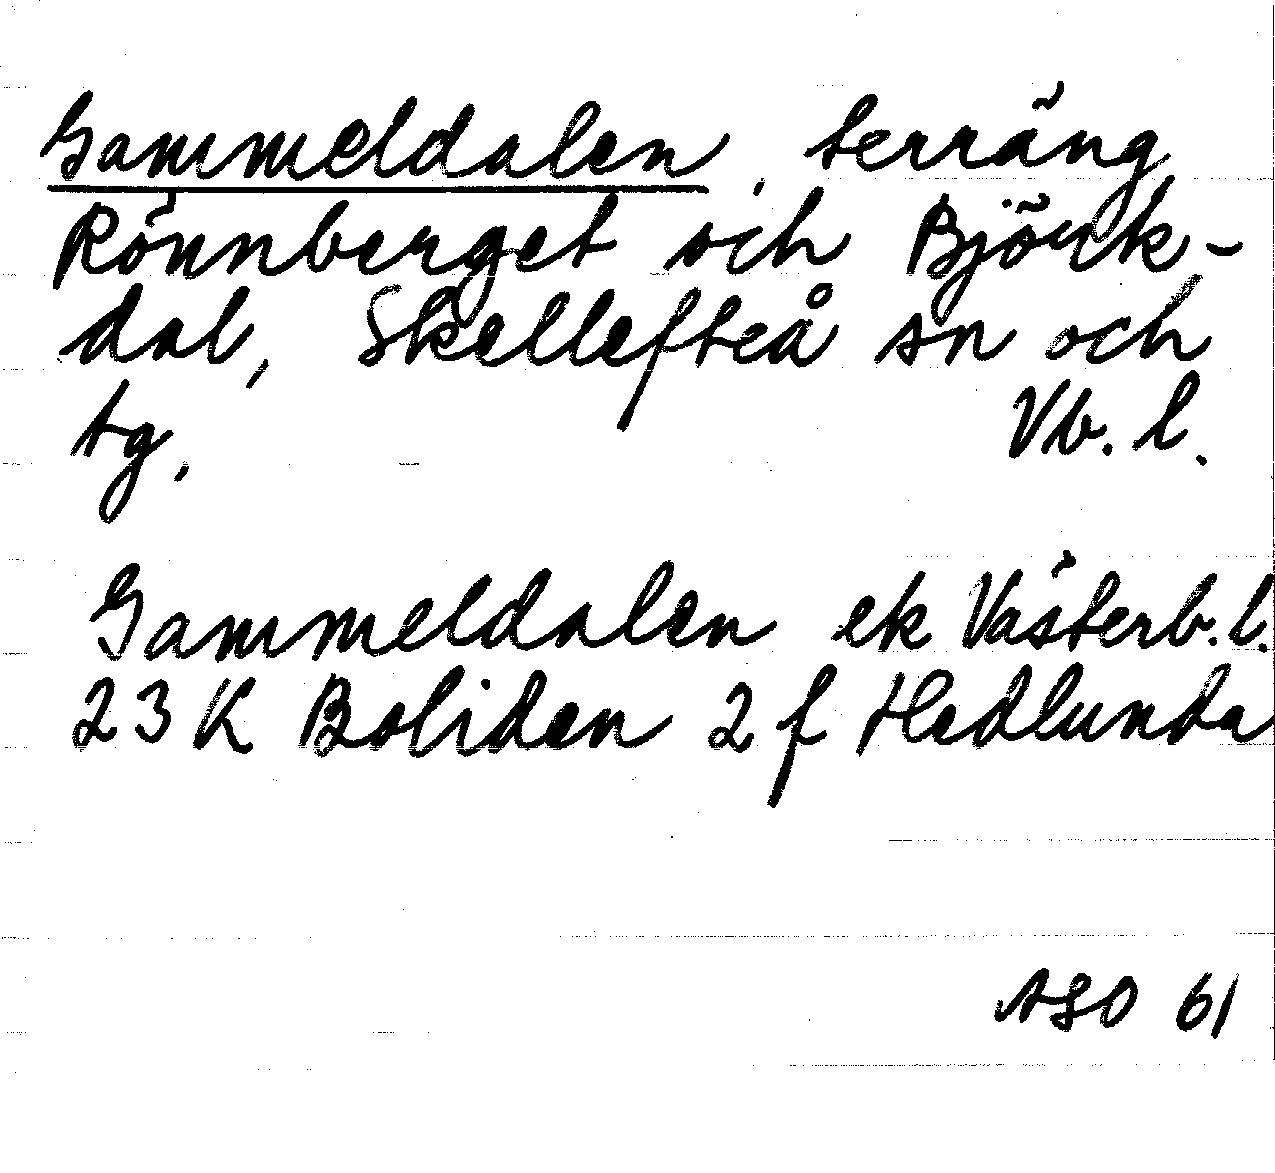 Gammeldalen, terräng
Rönnberget och Björk-
dal, Skellefteå sn och
tg. Vb. l.
Gammeldalen ek Västerb. l.
23 K Boliden 2 f Hedlunda
ASO 61